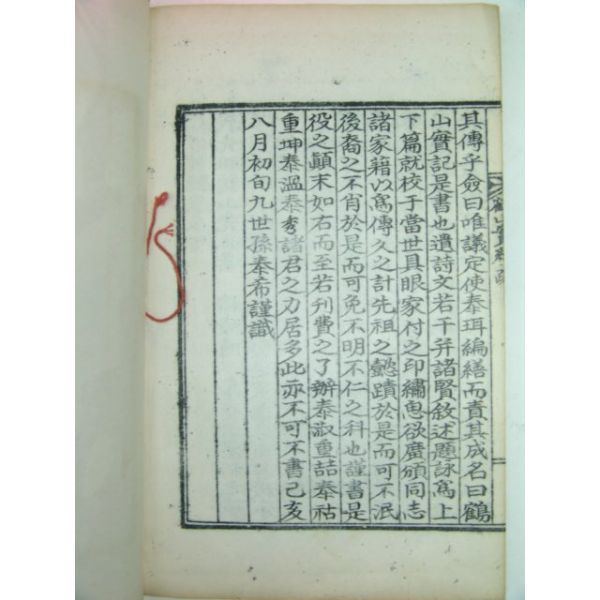 其傳乎僉曰唯議定使奉珥編繕而責其成名曰鶴
山實記是書也遺詩文若干幷諸賢敘述題詠爲上
下篇就校于當世具眼家付之印繡鬼欲廣頒同志
諸家籍以爲傳久之計先祖之懿蹟於是而可不泯
後裔之不肖於是而可免不明不仁之科也謹書是
役之顚末如右而至若刊費之了辦泰淑重喆奉祜
重坤泰溫泰秀諸君之力居多此亦不可不書己亥
八月初旬九世孫奉希謹識